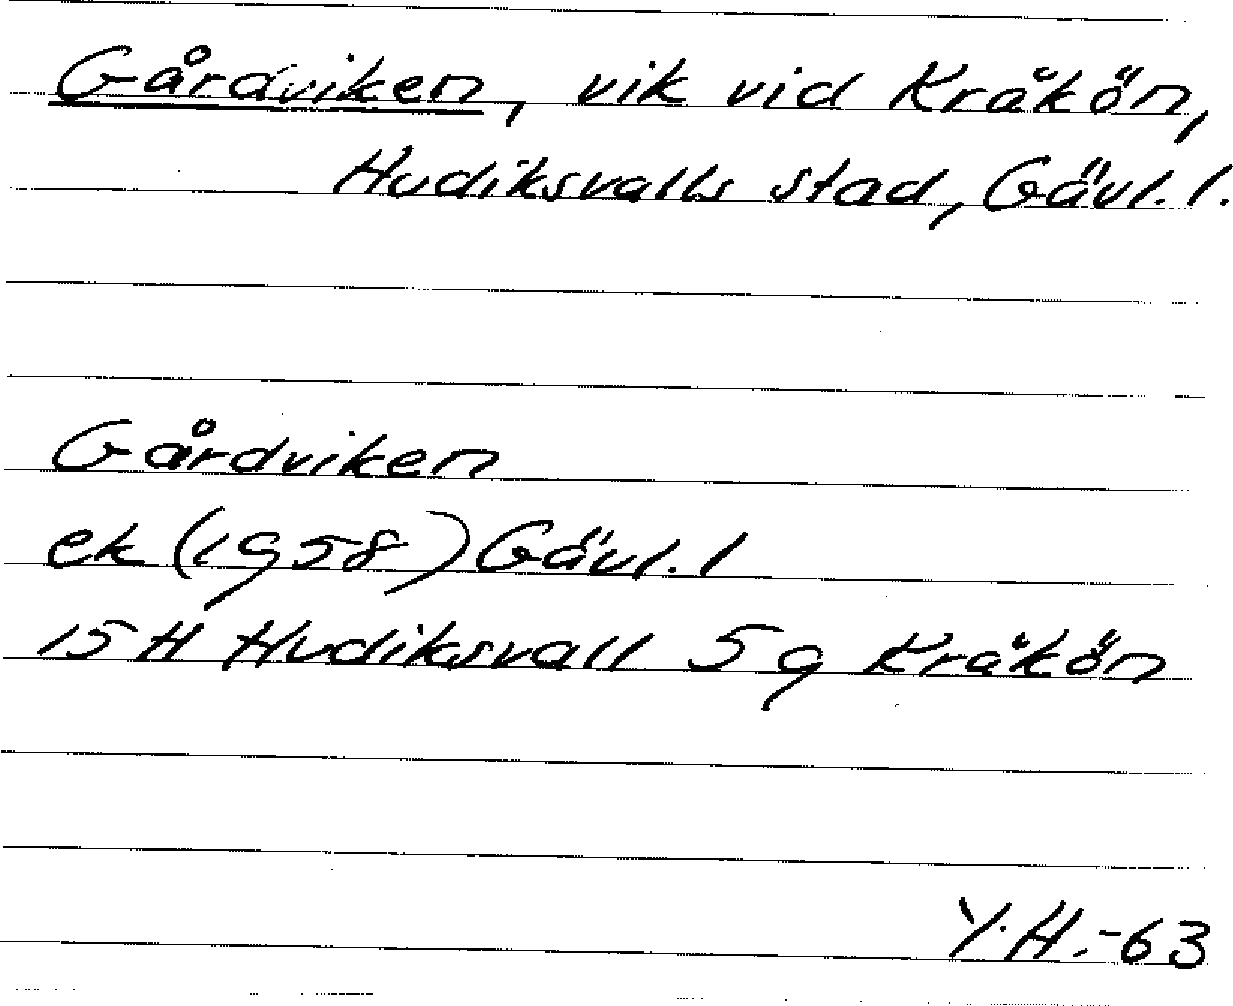 Gårdviken, vik vid Kråkön,
Hudiksvalls stad, Gävl. l.
Gårdviken
ek (1958) Gävl. l
15 H Hudiksvall 5 g Kråkön
Y. H. -63